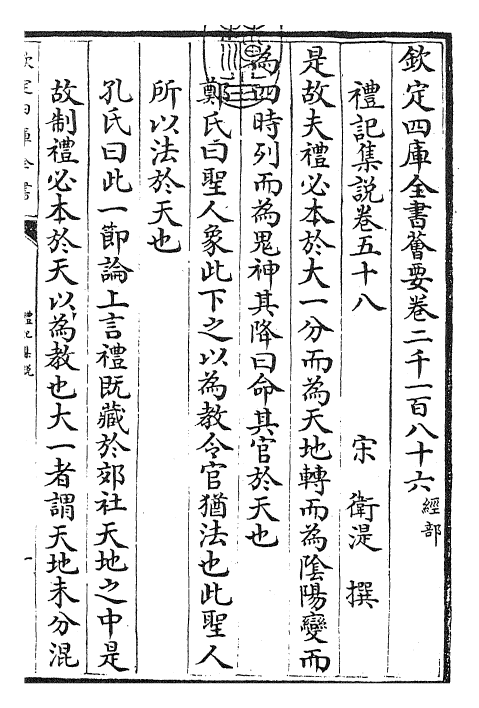 欽定四庫全書薈要卷二千一百八十六經部
禮記集説卷五十八
宋 衛湜 撰
是故夫禮必本於大一分而為天地轉而為隂陽變而
為四時列而為鬼神其降曰命其官於天也
鄭氏曰聖人象此下之以為教令官猶法也此聖人
所以法於天也
孔氏曰此一節論上言禮既藏於郊社天地之中是
故制禮必本於天以為教也大一者謂天地未分混
欽定四庫全書
禮記集説
一